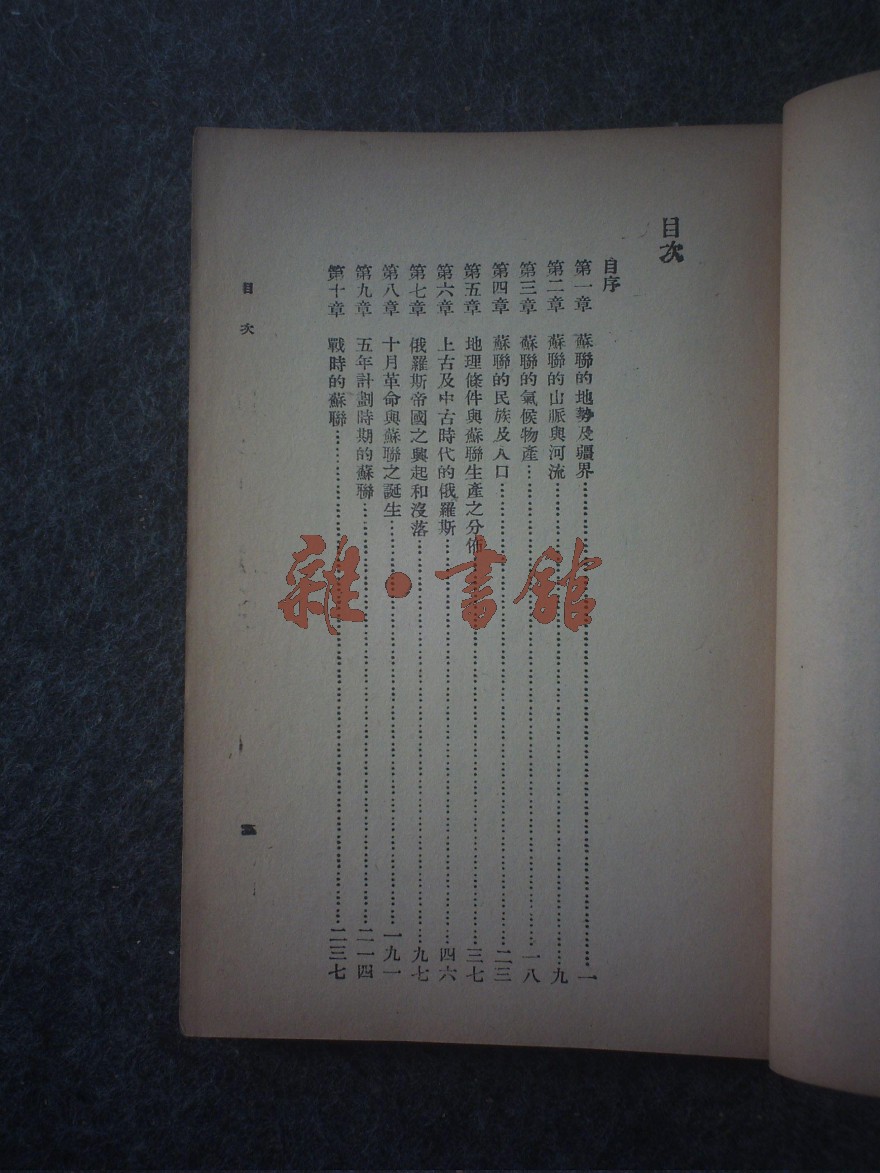 目次
自序
第一章 蘇聯的地勢及疆界…………一
第二章 蘇聯的山脈與河流…………九
第三章 蘇聯的氣候物產…………一八
第四章 蘇聯的民族及人口…………二三
第五章 地理條件與蘇聯生產之分佈…………三七
第六章 上古及中古時代的俄羅斯…………四六
第七章 俄羅斯帝國之興起和沒落…………九七
第八章 十月革命與蘇聯之誕生…………一九一
第九章 五年計劃時期的蘇聯…………二一四
第十章 戰時的蘇聯…………二三七
目次
雜·書館